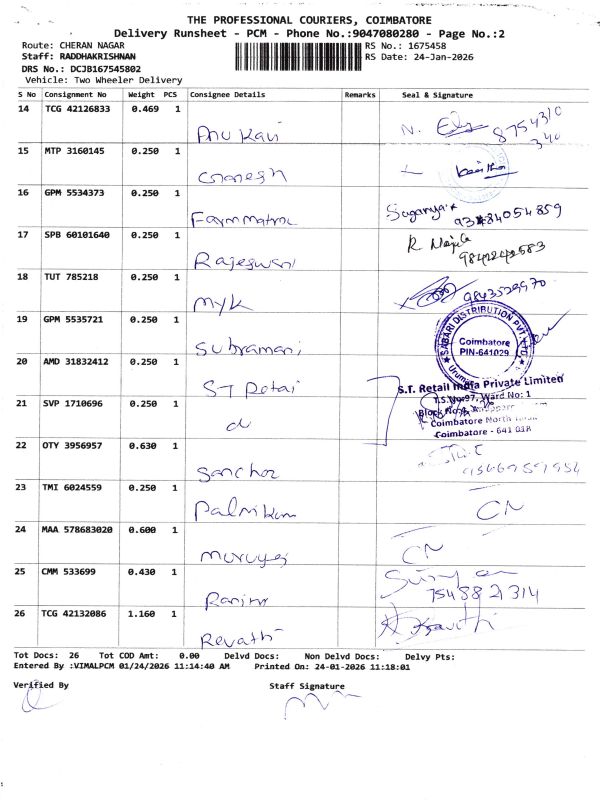 THE PROFESSIONAL COURIERS, COIMBATORE
Delivery Runsheet - PCM - Phone No.:9047080280 - Page No.:2
Route: CHERAN NAGAR RS No.: 1675458
Staff: RADDHAKRISHNAN RS Date: 24-Jan-2026
DRS No.: DCJB167545802
Vehicle: Two Wheeler Delivery
S No Consignment No Weight PCS Consignee Details Remarks Seal & Signature
14 TCG 42126833 0.469 1
Anu Kavi N. 8754310
340
15 MTP 3160145 0.250 1
Ganesh
16 GPM 5534373 0.250 1
Farmmatrac
17 SPB 60101640 0.250 1
Rajeswari R
18 TUT 785218 0.250 1
myk 9843529970
19 GPM 5535721 0.250 1
Subramani
SABARI DISTRIBUTION PVT. LTD.
Coimbatore
PIN-641029
20 AMD 31832412 0.250 1
ST Retai
S.T. Retail India Private Limited
T.S.No:97, Ward No: 1
21 SVP 1710696 0.250 1
d
Coimbatore North
Coimbatore - 641 018
22 OTY 3956957 0.630 1
Sanchoz
23 TMI 6024559 0.250 1
CN
24 MAA 578683020 0.600 1
Muruges CN
25 CMM 533699 0.430 1
Ranjini Suriya
7548821314
26 TCG 42132086 1.160 1
Revathi Kavithi
Tot Docs: 26 Tot COD Amt: 0.00 Delvd Docs: Non Delvd Docs: Delvy Pts:
Entered By :VIMALPCM 01/24/2026 11:14:40 AM Printed On: 24-01-2026 11:18:01
Verified By Staff Signature